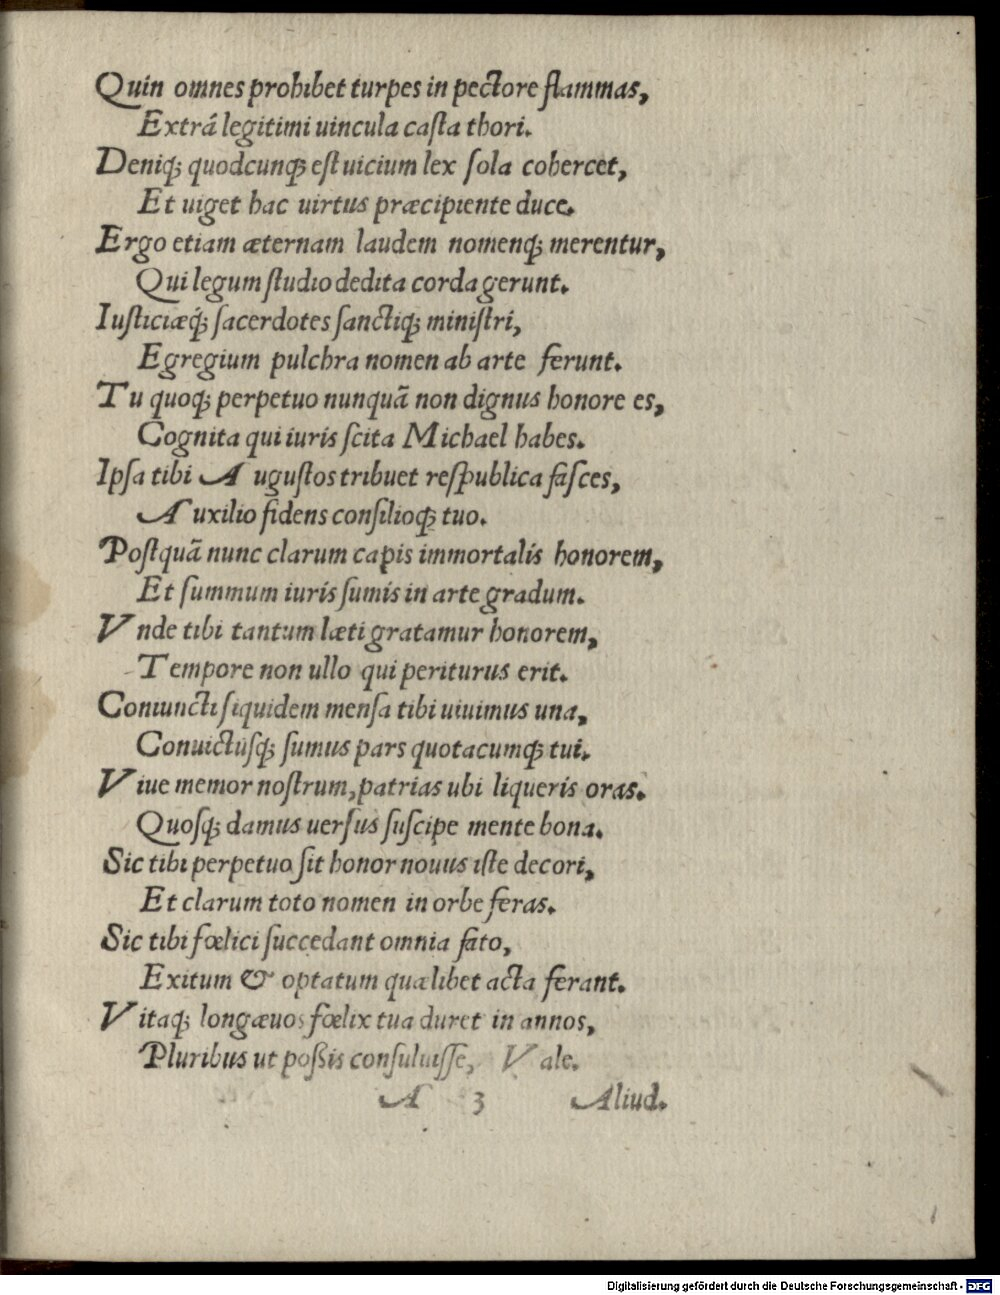 Quin omnes prohibet turpes in pectore flammas,
Extrá legitimi uincula casta thori.
Deniq; quodcunq; est uicium lex sola cohercet,
Et uiget hac uirtus præcipiente duce.
Ergo etiam æternam laudem nomenq; merentur,
Qui legum studio dedita corda gerunt.
Iusticiæq́; sacerdotes sanctiq; ministri,
Egregium pulchra nomen ab arte ferunt.
Tu quoq; perpetuo nunquã non dignus honore es,
Cognita qui iuris scita Michael habes.
Ipsa tibi Augustos tribuet respublica fasces,
Auxilio fidens consilioq; tuo.
Postquã nunc clarum capis immortalis honorem,
Et summum iuris sumis in arte gradum.
Vnde tibi tantum læti gratamur honorem,
Tempore non ullo qui periturus erit.
Coniuncti siquidem mensa tibi uiuimus una,
Conuictusq; sumus pars quotacumq; tui.
Viue memor nostrum, patrias ubi liqueris oras.
Quosq; damus uersus suscipe mente bona.
Sic tibi perpetuo sit honor nouus iste decori,
Et clarum toto nomen in orbe feras.
Sic tibi fœlici succedant omnia fato,
Exitum & optatum quælibet acta ferant.
Vitaq; longæuos fœlix tua duret in annos,
Pluribus ut poßis consuluisse, Vale.
A 3 Aliud.
Digitalisierung gefördert durch die Deutsche Forschungsgemeinschaft - DFG